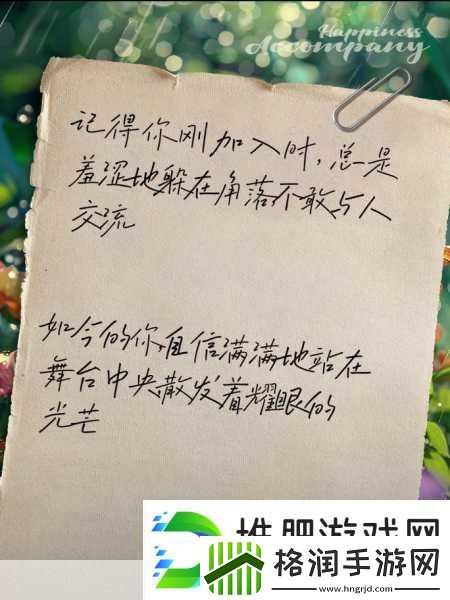 Happiness
Accompany
记得你刚加入时，总是
羞涩地躲在角落不敢与人
交流
如今的你自信满满地站在
舞台中央散发着耀眼的
光芒
格润手游网
www.hngrjd.com